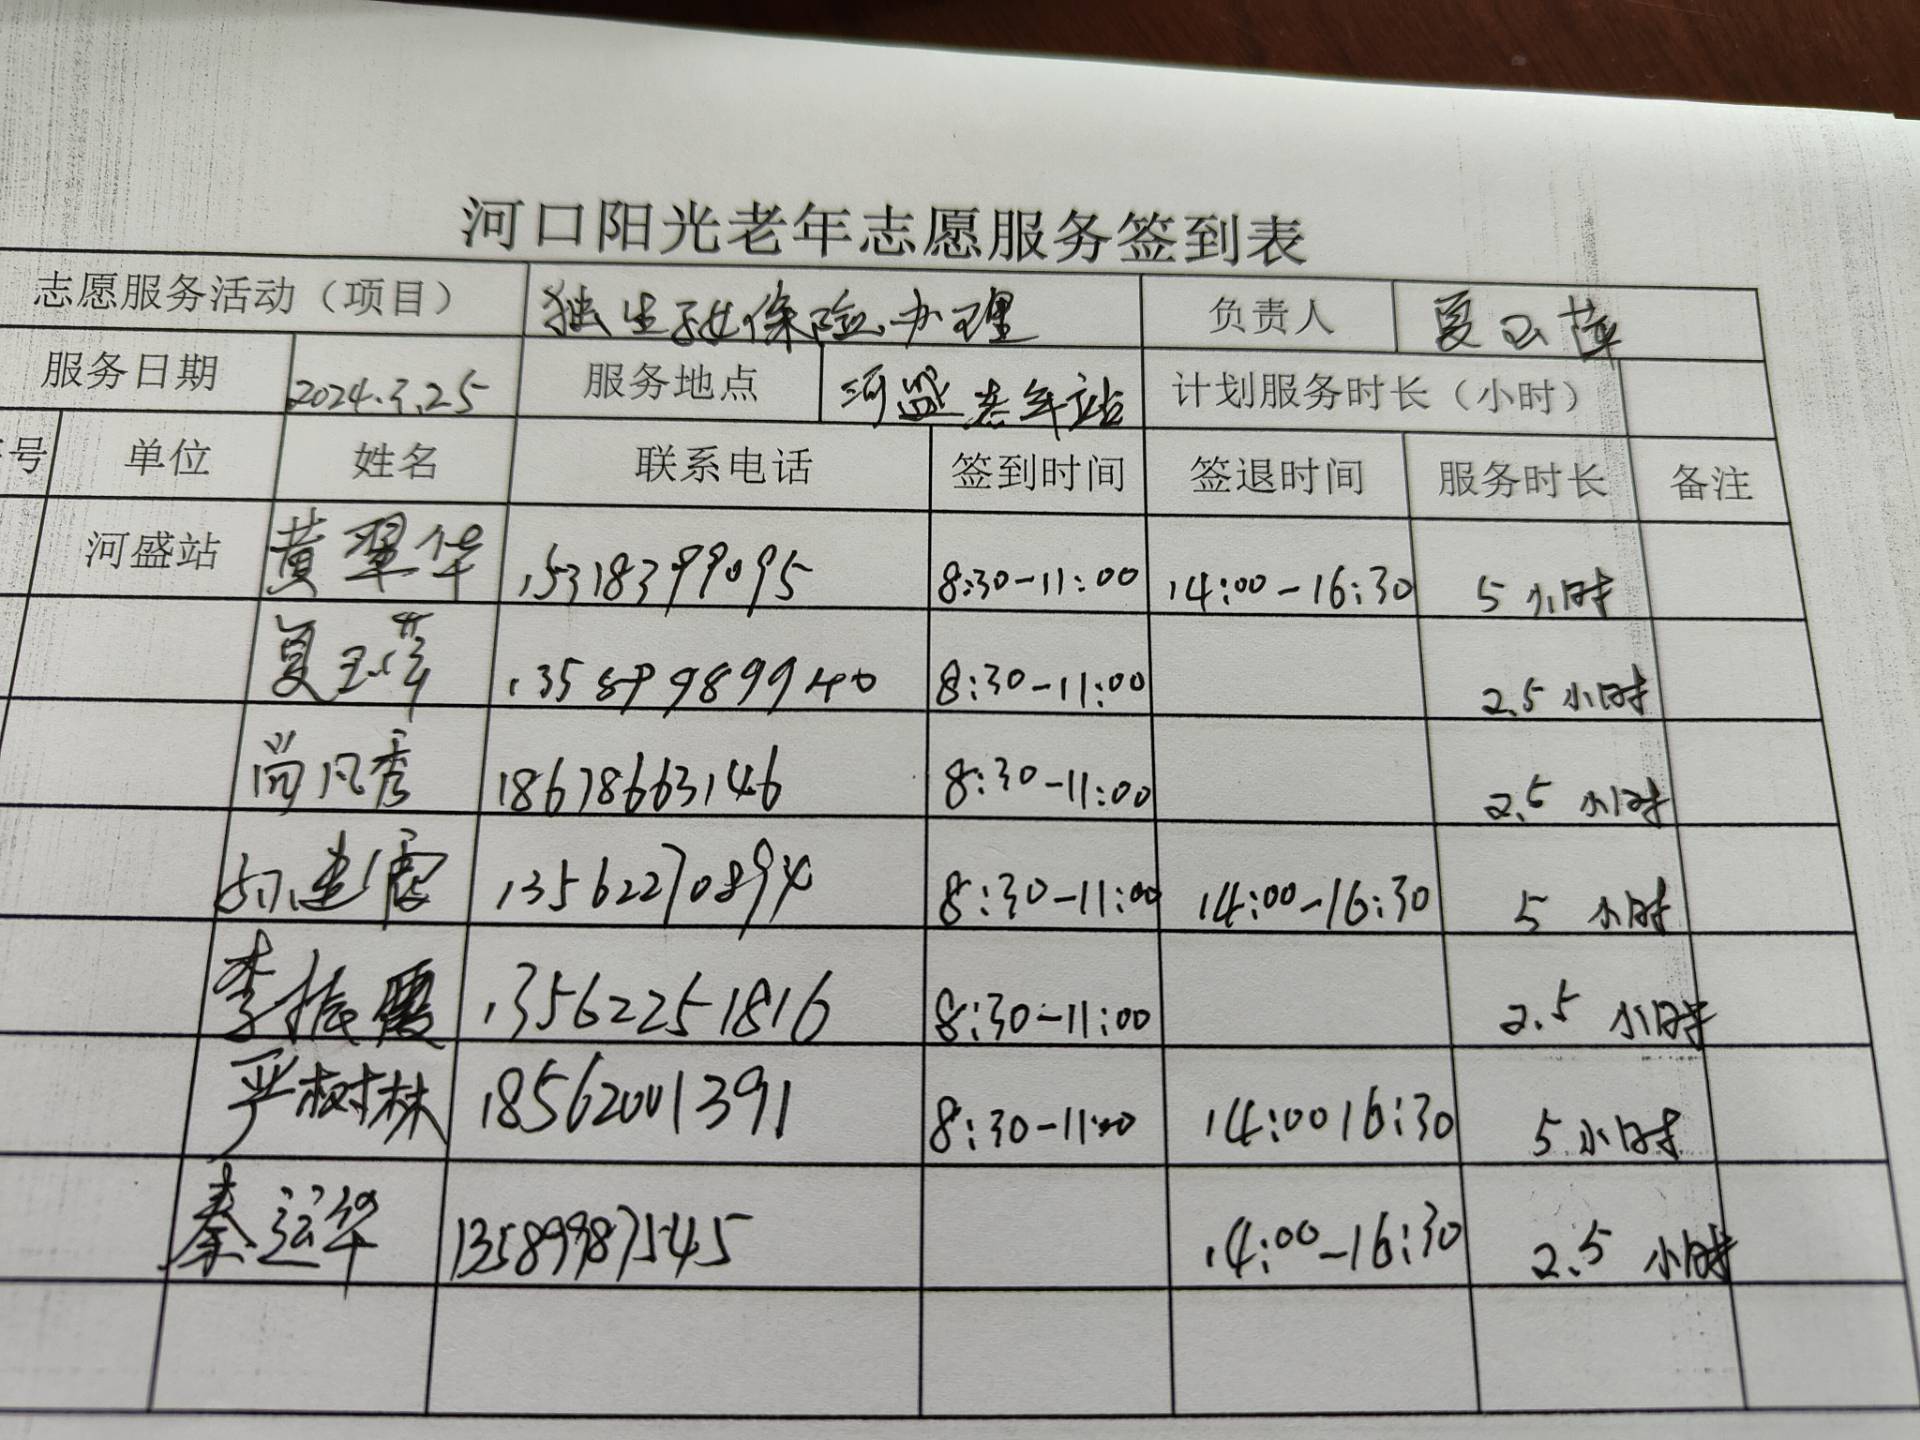 河口阳光老年志愿服务签到表
志愿服务活动（项目） 独生子女保险办理 负责人 夏玉萍
服务日期 2024.3.25 服务地点 河盛老年站 计划服务时长（小时）
号 单位 姓名 联系电话 签到时间 签退时间 服务时长 备注
河盛站 黄翠华 15318399095 8:30-11:00 14:00-16:30 5小时
夏玉萍 13589989940 8:30-11:00 2.5小时
尚凡秀 18678663146 8:30-11:00 2.5小时
建霞 13562270894 8:30-11:00 14:00-16:30 5小时
李振霞 13562251816 8:30-11:00 2.5小时
严树林 18562001391 8:30-11:00 14:00 16:30 5小时
秦运华 13589987545 14:00-16:30 2.5小时